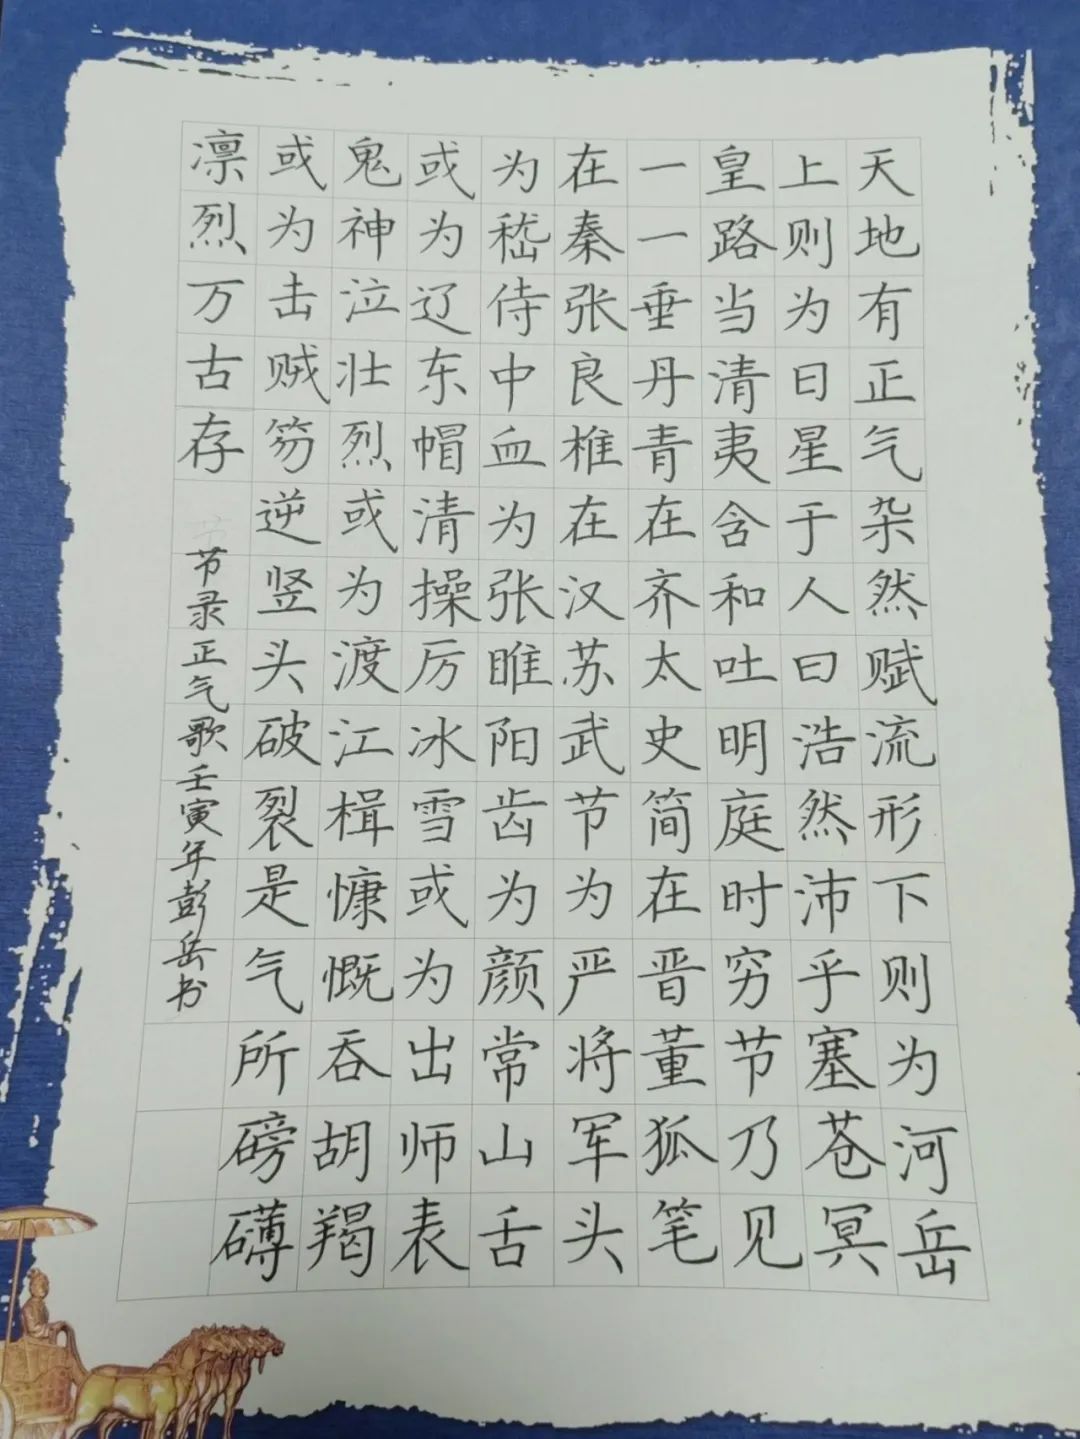 天地有正气杂然赋流形下则为河岳
上则为日星于人曰浩然沛乎塞苍冥
皇路当清夷含和吐明庭时穷节乃见
一一垂丹青在齐太史简在晋董狐笔
在秦张良椎在汉苏武节为严将军头
为嵇侍中血为张睢阳齿为颜常山舌
或为辽东帽清操厉冰雪或为出师表
鬼神泣壮烈或为渡江楫慷慨吞胡羯
或为击贼笏逆竖头破裂是气所磅礴
凛烈万古存
节录正气歌壬寅年彭岳书